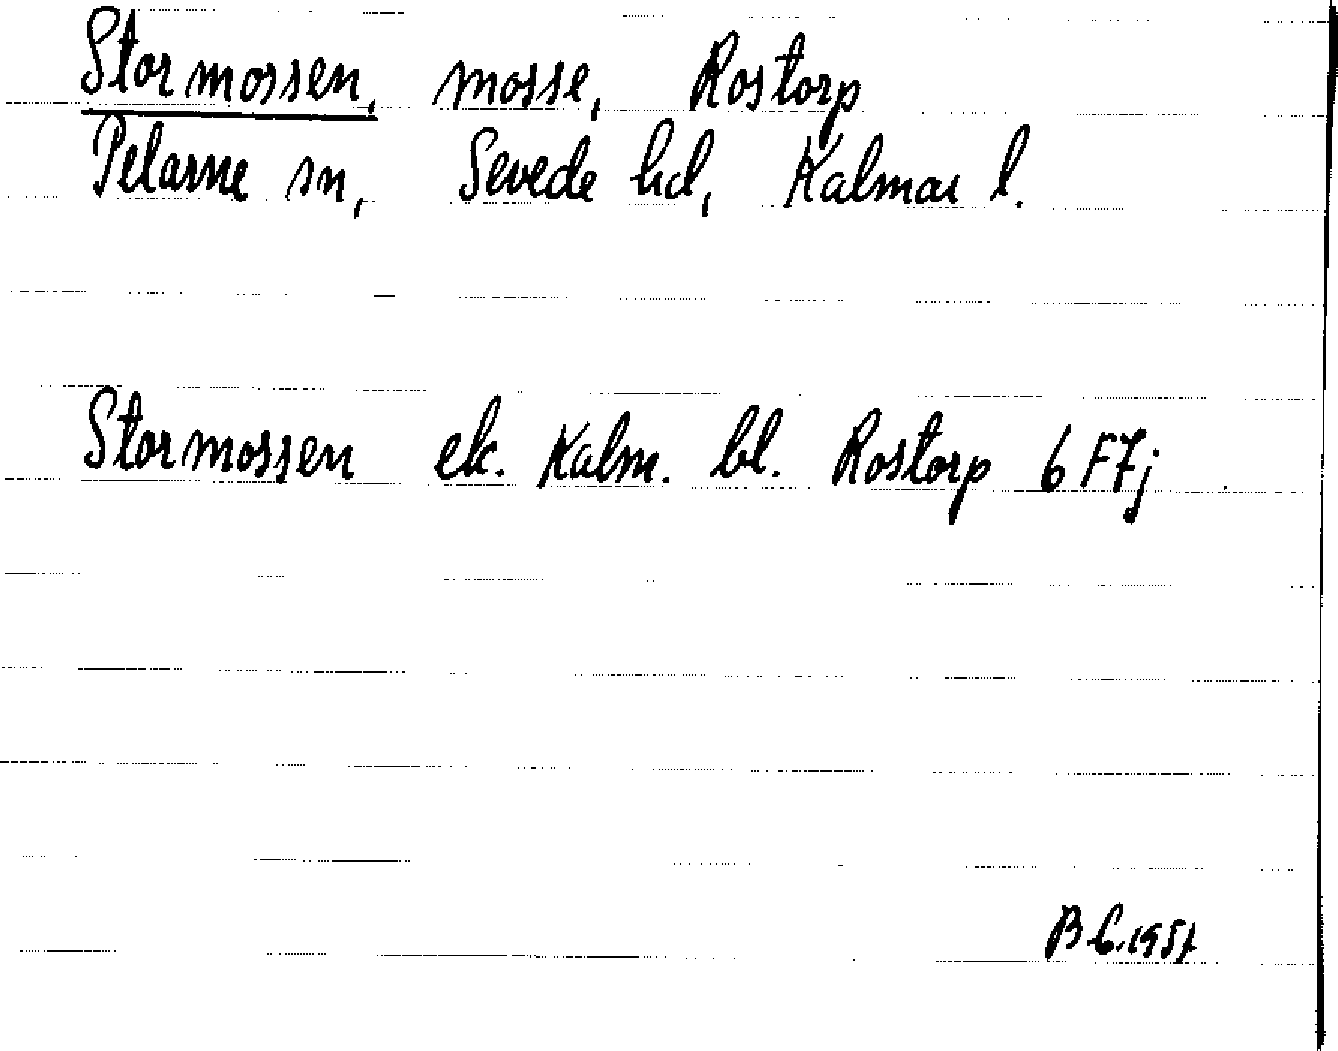 Stormossen, mosse, Rostorp
Pelarne sn, Sevede hd, Kalmar l.
Stormossen ek. Kalm. bl. Rostorp 6 F7j